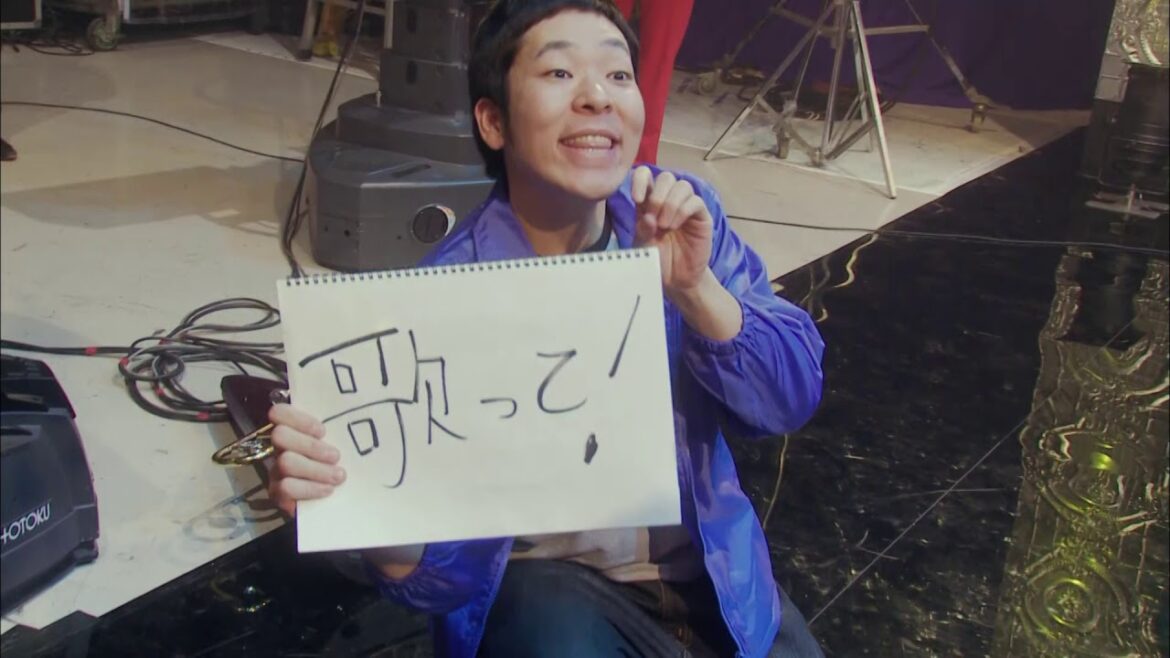 歌って!
+OTOKU